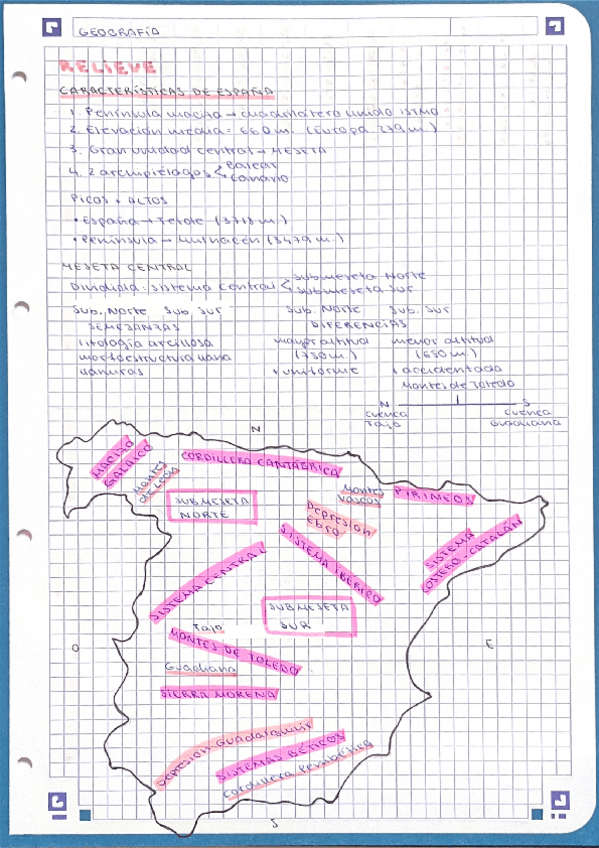 GEOGRAFÍA
RELIEVE
CARACTERÍSTICAS DE ESPAÑA
1. Península maciza → cuadrilátero unido ISTMO
2. Elevación media = 660 m. (Europa
3. Gran unidad central → MESETA
4. 2 archipiélagos < Balear
Canario
PICOS + ALTOS
• España → Teide (3718 m.)
• Península → Mulhacén (3479 m.)
MESETA CENTRAL
Dividida: sistema central < submeseta Norte
submeseta Sur
Sub. Norte Sub. Sur Sub. Norte Sub. Sur
SEMEJANZAS DIFERENCIAS
litología arcillosa mayor altitud menor altitud
morfoestructura llana (750 m.) (650 m.)
llanuras + uniforme + accidentada
Montes de Toledo
N S
cuenca cuenca
Tajo Guadiana
N
MACIZO
GALAICO
CORDILLERA CANTÁBRICA
Montes
de León
Montes
Vascos
PIRINEOS
SUBMESETA
NORTE
Depresión
Ebro
SISTEMA
COSTERO-CATALÁN
SISTEMA IBÉRICO
SISTEMA CENTRAL
SUBMESETA
SUR
Tajo
O
MONTES DE TOLEDO
E
Guadiana
SIERRA MORENA
Depresión Guadalquivir
SISTEMAS BÉTICOS
Cordillera Penibética
S